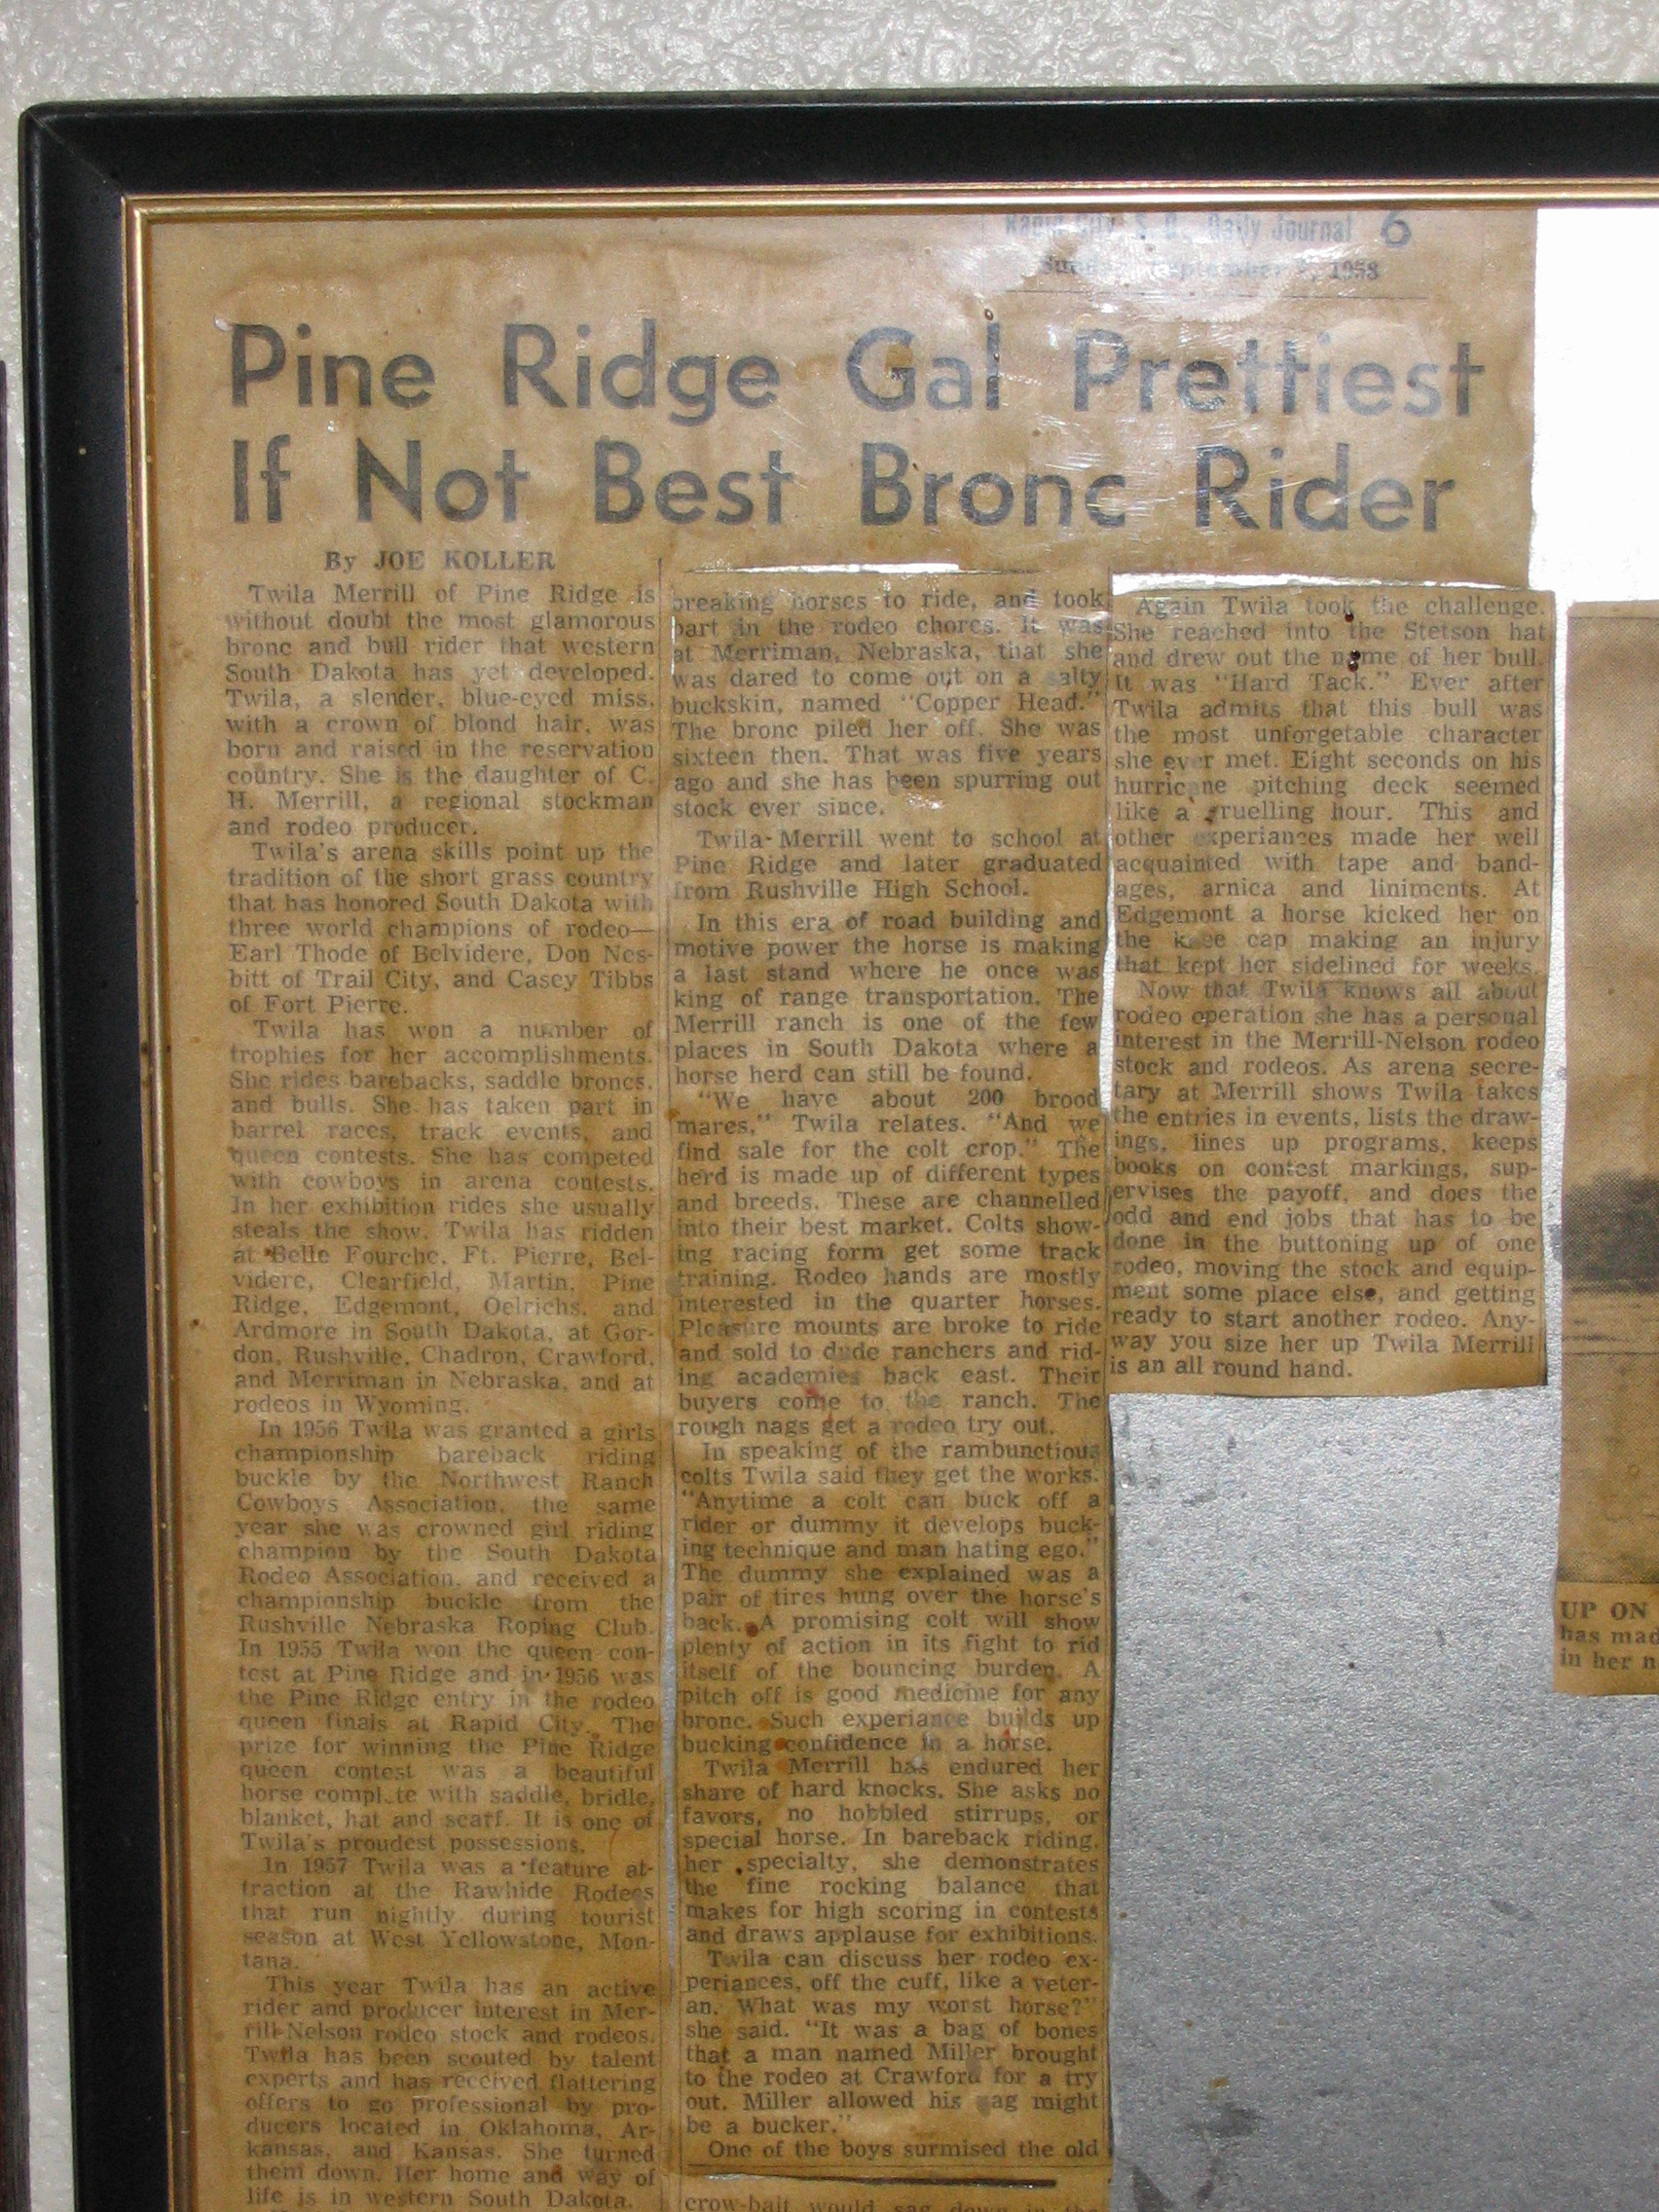 Rapid City, S. D. Daily Journal 6
Sunday, September 1958
Pine Ridge Gal Prettiest
If Not Best Bronc Rider
By JOE KOLLER
Twila Merrill of Pine Ridge is
without doubt the most glamorous
bronc and bull rider that western
South Dakota has yet developed.
Twila, a slender, blue-eyed miss,
with a crown of blond hair, was
born and raised in the reservation
country. She is the daughter of C.
H. Merrill, a regional stockman
and rodeo producer.
Twila's arena skills point up the
tradition of the short grass country
that has honored South Dakota with
three world champions of rodeo—
Earl Thode of Belvidere, Don Nes-
bitt of Trail City, and Casey Tibbs
of Fort Pierre.
Twila has won a number of
trophies for her accomplishments.
She rides barebacks, saddle broncs,
and bulls. She has taken part in
barrel races, track events, and
queen contests. She has competed
with cowboys in arena contests.
In her exhibition rides she usually
steals the show. Twila has ridden
at Belle Fourche, Ft. Pierre, Bel-
videre, Clearfield, Martin, Pine
Ridge, Edgemont, Oelrichs, and
Ardmore in South Dakota, at Gor-
don, Rushville, Chadron, Crawford,
and Merriman in Nebraska, and at
rodeos in Wyoming.
In 1956 Twila was granted a girls
championship bareback riding
buckle by the Northwest Ranch
Cowboys Association, the same
year she was crowned girl riding
champion by the South Dakota
Rodeo Association, and received a
championship buckle from the
Rushville Nebraska Roping Club.
In 1955 Twila won the queen con-
test at Pine Ridge and in 1956 was
the Pine Ridge entry in the rodeo
queen finals at Rapid City. The
prize for winning the Pine Ridge
queen contest was a beautiful
horse complete with saddle, bridle,
blanket, hat and scarf. It is one of
Twila's proudest possessions.
In 1957 Twila was a feature at-
traction at the Rawhide Rodeos
that run nightly during tourist
season at West Yellowstone, Mon-
tana.
This year Twila has an active
rider and producer interest in Mer-
rill-Nelson rodeo stock and rodeos.
Twila has been scouted by talent
experts and has received flattering
offers to go professional by pro-
ducers located in Oklahoma, Ar-
kansas, and Kansas. She turned
them down. Her home and way of
life is in western South Dakota.
breaking horses to ride, and took
part in the rodeo chores. It was
at Merriman, Nebraska, that she
was dared to come out on a salty
buckskin, named "Copper Head."
The bronc piled her off. She was
sixteen then. That was five years
ago and she has been spurring out
stock ever since.
Twila Merrill went to school at
Pine Ridge and later graduated
from Rushville High School.
In this era of road building and
motive power the horse is making
a last stand where he once was
king of range transportation. The
Merrill ranch is one of the few
places in South Dakota where a
horse herd can still be found.
"We have about 200 brood
mares," Twila relates. "And we
find sale for the colt crop." The
herd is made up of different types
and breeds. These are channelled
into their best market. Colts show-
ing racing form get some track
training. Rodeo hands are mostly
interested in the quarter horses.
Pleasure mounts are broke to ride
and sold to dude ranchers and rid-
ing academies back east. Their
buyers come to the ranch. The
rough nags get a rodeo try out.
In speaking of the rambunctious
colts Twila said they get the works.
"Anytime a colt can buck off a
rider or dummy it develops buck-
ing technique and man hating ego."
The dummy she explained was a
pair of tires hung over the horse's
back. A promising colt will show
plenty of action in its fight to rid
itself of the bouncing burden. A
pitch off is good medicine for any
bronc. Such experiance builds up
bucking confidence in a horse.
Twila Merrill has endured her
share of hard knocks. She asks no
favors, no hobbled stirrups, or
special horse. In bareback riding,
her specialty, she demonstrates
the fine rocking balance that
makes for high scoring in contests
and draws applause for exhibitions.
Twila can discuss her rodeo ex-
periances, off the cuff, like a veter-
an. What was my worst horse?"
she said. "It was a bag of bones
that a man named Miller brought
to the rodeo at Crawford for a try
out. Miller allowed his nag might
be a bucker."
One of the boys surmised the old
crow-bait would sag down in the
Again Twila took the challenge.
She reached into the Stetson hat
and drew out the name of her bull.
It was "Hard Tack." Ever after
Twila admits that this bull was
the most unforgetable character
she ever met. Eight seconds on his
hurricane pitching deck seemed
like a gruelling hour. This and
other experiances made her well
acquainted with tape and band-
ages, arnica and liniments. At
Edgemont a horse kicked her on
the knee cap making an injury
that kept her sidelined for weeks.
Now that Twila knows all about
rodeo operation she has a personal
interest in the Merrill-Nelson rodeo
stock and rodeos. As arena secre-
tary at Merrill shows Twila takes
the entries in events, lists the draw-
ings, lines up programs, keeps
books on contest markings, sup-
ervises the payoff, and does the
odd and end jobs that has to be
done in the buttoning up of one
rodeo, moving the stock and equip-
ment some place else, and getting
ready to start another rodeo. Any-
way you size her up Twila Merrill
is an all round hand.
UP ON
has mad
in her n